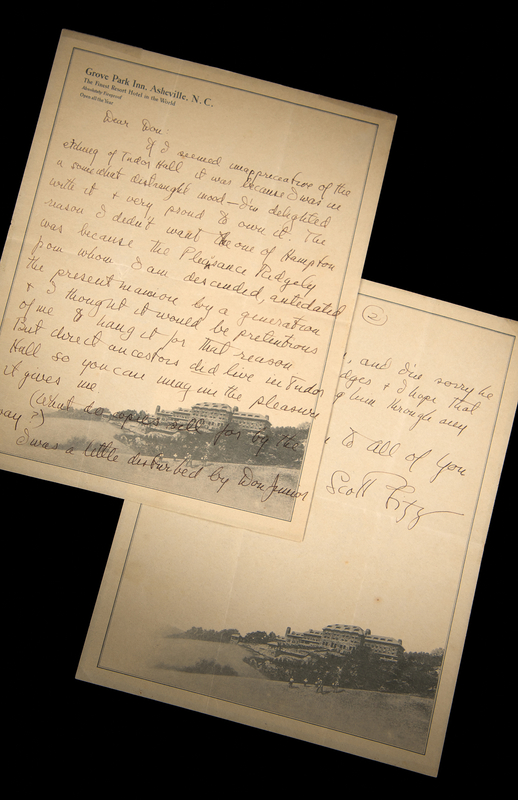 Grove Park Inn. Asheville, N. C.
The Finest Resort Hotel in the World
Absolutely Fireproof
Open all the Year
Dear Don:
If I seemed inappreciative of the
etching of Tudor Hall it was because I was in
a somewhat distraught mood—I'm delighted
with it + very proud to own it. The
reason I didn't want the one of Hampton
was because the Pleasance Ridgely
from whom I am descended, antedated
the present mansion by a generation
+ I thought it would be pretentious
of me to hang it for that reason
But direct ancestors did live in Tudor
Hall so you can imagine the pleasure
it gives me
(What do apes sell for by the
way?)
I was a little disturbed by Don Junior
2
, and I'm sorry he
dges + I hope that
g him through any
to all of you
Scott Fitz